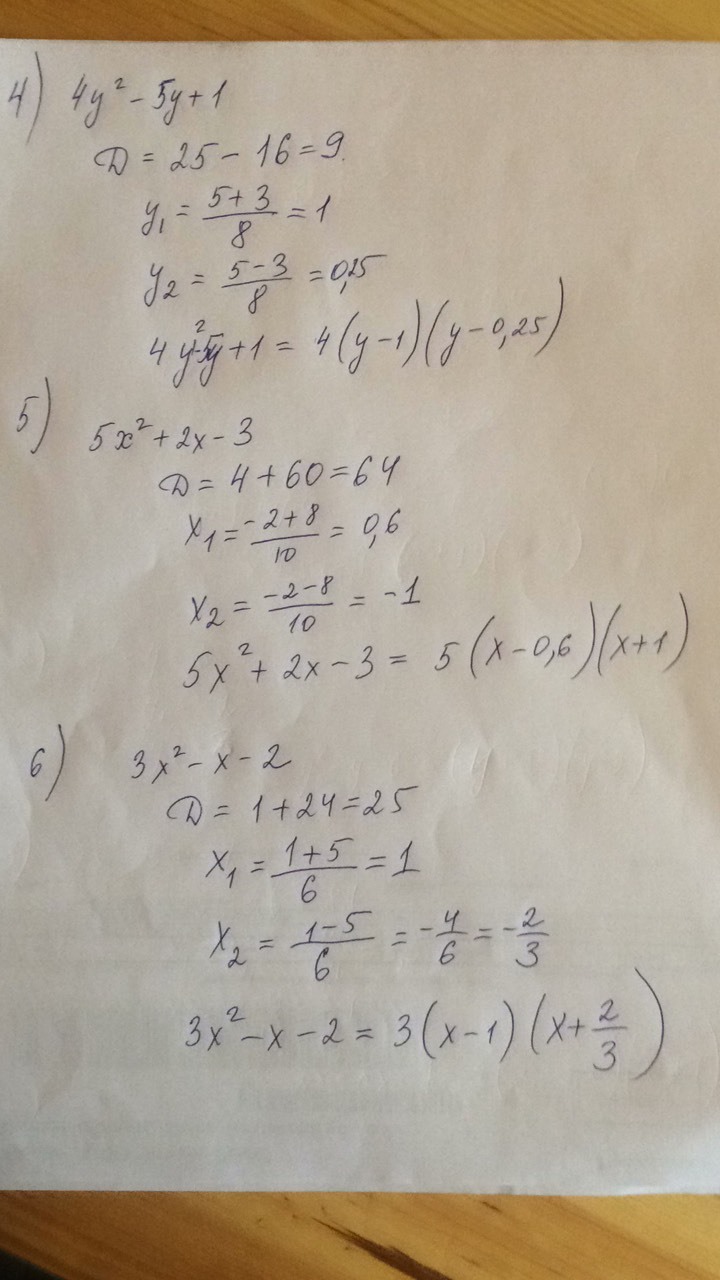 4) 4y² - 5y + 1
D = 25 - 16 = 9.
y₁ = (5+3)/8 = 1
y₂ = (5-3)/8 = 0,25
4y²-5y+1 = 4(y-1)(y-0,25)
5) 5x² + 2x - 3
D = 4 + 60 = 64
x₁ = (-2+8)/10 = 0,6
x₂ = (-2-8)/10 = -1
5x² + 2x - 3 = 5(x-0,6)(x+1)
6) 3x² - x - 2
D = 1 + 24 = 25
x₁ = (1+5)/6 = 1
x₂ = (1-5)/6 = -4/6 = -2/3
3x² - x - 2 = 3(x-1)(x+2/3)